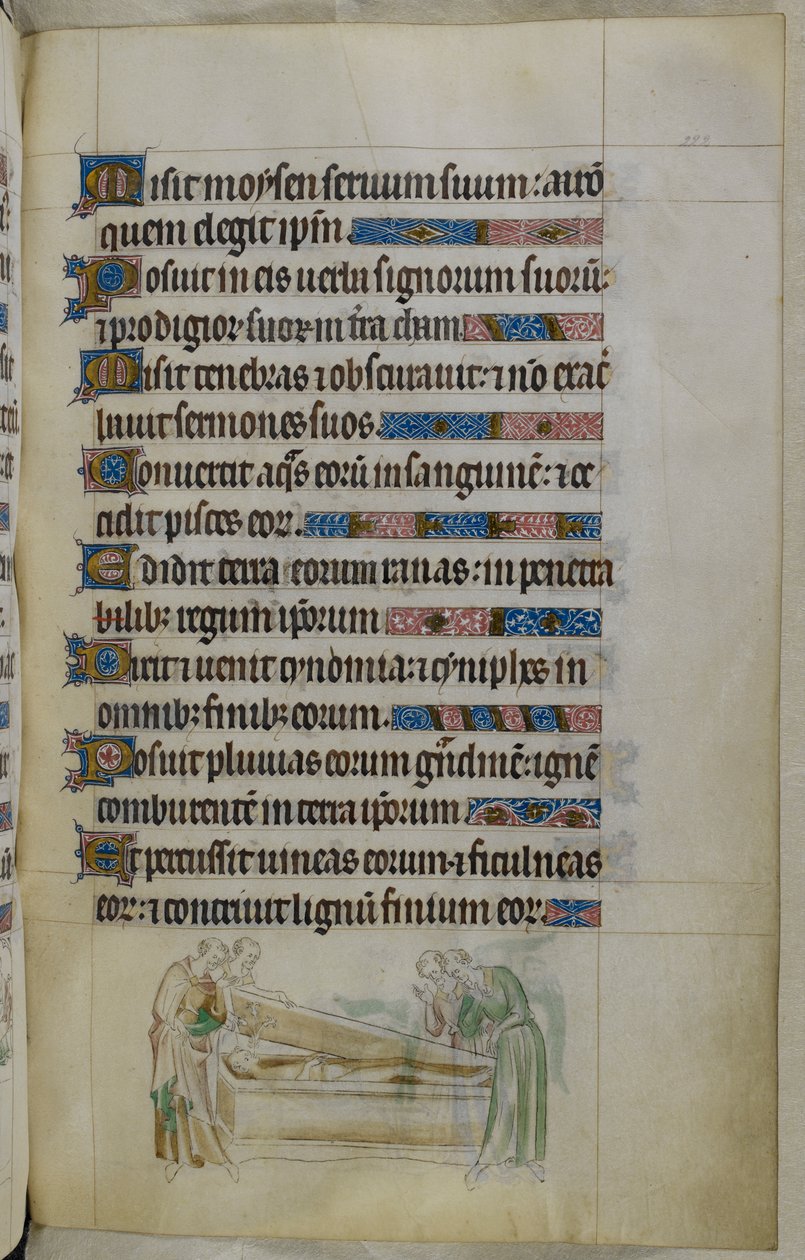 222
Misit moysen seruum suum: aarō
quem elegit ip̄m.
Posuit in eis uerba signorum suorū:
⁊ prodigioꝝ suoꝝ in t̄ra cham.
Misit tenebras ⁊ obscurauit: ⁊ nō exac̄
buit sermones suos.
Conuertit aqᷓs eorū in sanguinē: ⁊ oc
cidit pisces eoꝝ.
Edidit terra eorum ranas: in penetra
bilibꝫ regum ip̄orum
Dixit ⁊ uenit cynomia: ⁊ cyniphes in
omnibꝫ finibꝫ eorum.
Posuit pluuias eorum gᷓndinē: ignē
comburentē in terra ip̄orum.
Et percussit uineas eorum ⁊ ficulneas
eoꝝ: ⁊ contriuit lignū finium eoꝝ.